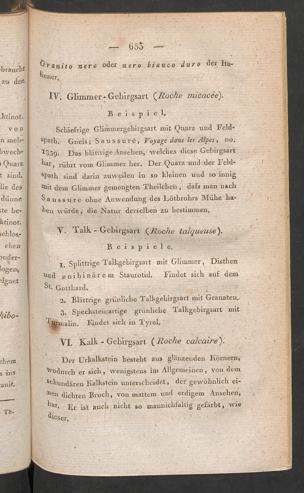 — 653 —
Granito nero oder nero bianco duro der Ita-
liener.
IV. Glimmer-Gebirgsart (Roche micacée).
Beispiel.
Schiefrige Glimmergebirgsart mit Quarz und Feld-
spath. Gneis; Saussure, Voyage dans les Alpes, no.
1359. Das blättrige Ansehen, welches diese Gebirgsart
hat, rührt vom Glimmer her. Der Quarz und der Feld-
spath sind darin zuweilen in so kleinen und so innig
mit dem Glimmer gemengten Theilchen, daß man nach
Saussure ohne Anwendung des Löthrohrs Mühe ha-
ben würde, die Natur derselben zu bestimmen.
V. Talk-Gebirgsart (Roche talqueuse).
Beispiele.
1. Splittrige Talkgebirgsart mit Glimmer, Disthen
und unibinärem Staurotid. Findet sich auf dem
St. Gotthard.
2. Blättrige grünliche Talkgebirgsart mit Granaten.
3. Specksteinartige grünliche Talkgebirgsart mit
Turmalin. Findet sich in Tyrol.
VI. Kalk-Gebirgsart (Roche calcaire).
Der Urkalkstein besteht aus glänzenden Körnern,
wodurch er sich, wenigstens im Allgemeinen, von dem
sekundären Kalkstein unterscheidet, der gewöhnlich ei-
nen dichten Bruch, von mattem und erdigem Ansehen,
hat. Er ist auch nicht so mannichfaltig gefärbt, wie
dieser.